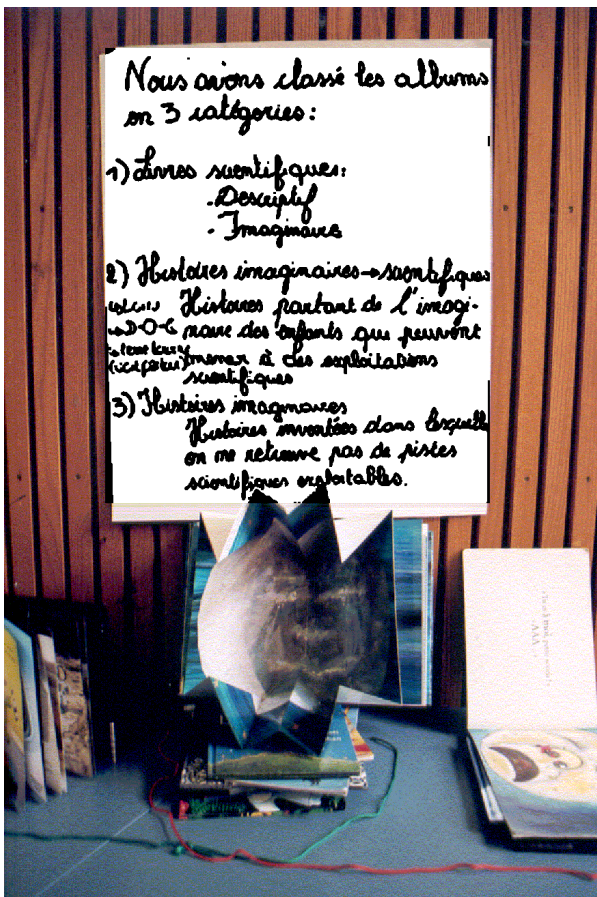 Nous avons classé les albums
en 3 catégories:
1) Livres scientifiques:
. Descriptif
. Imaginaire
2) Histoires imaginaires → scientifiques
Histoires partant de l'imagi-
naire des enfants qui peuvent
mener à des exploitations
scientifiques
3) Histoires imaginaires
Histoires inventées dans lesquelle
on ne retrouve pas de pistes
scientifiques exploitables.